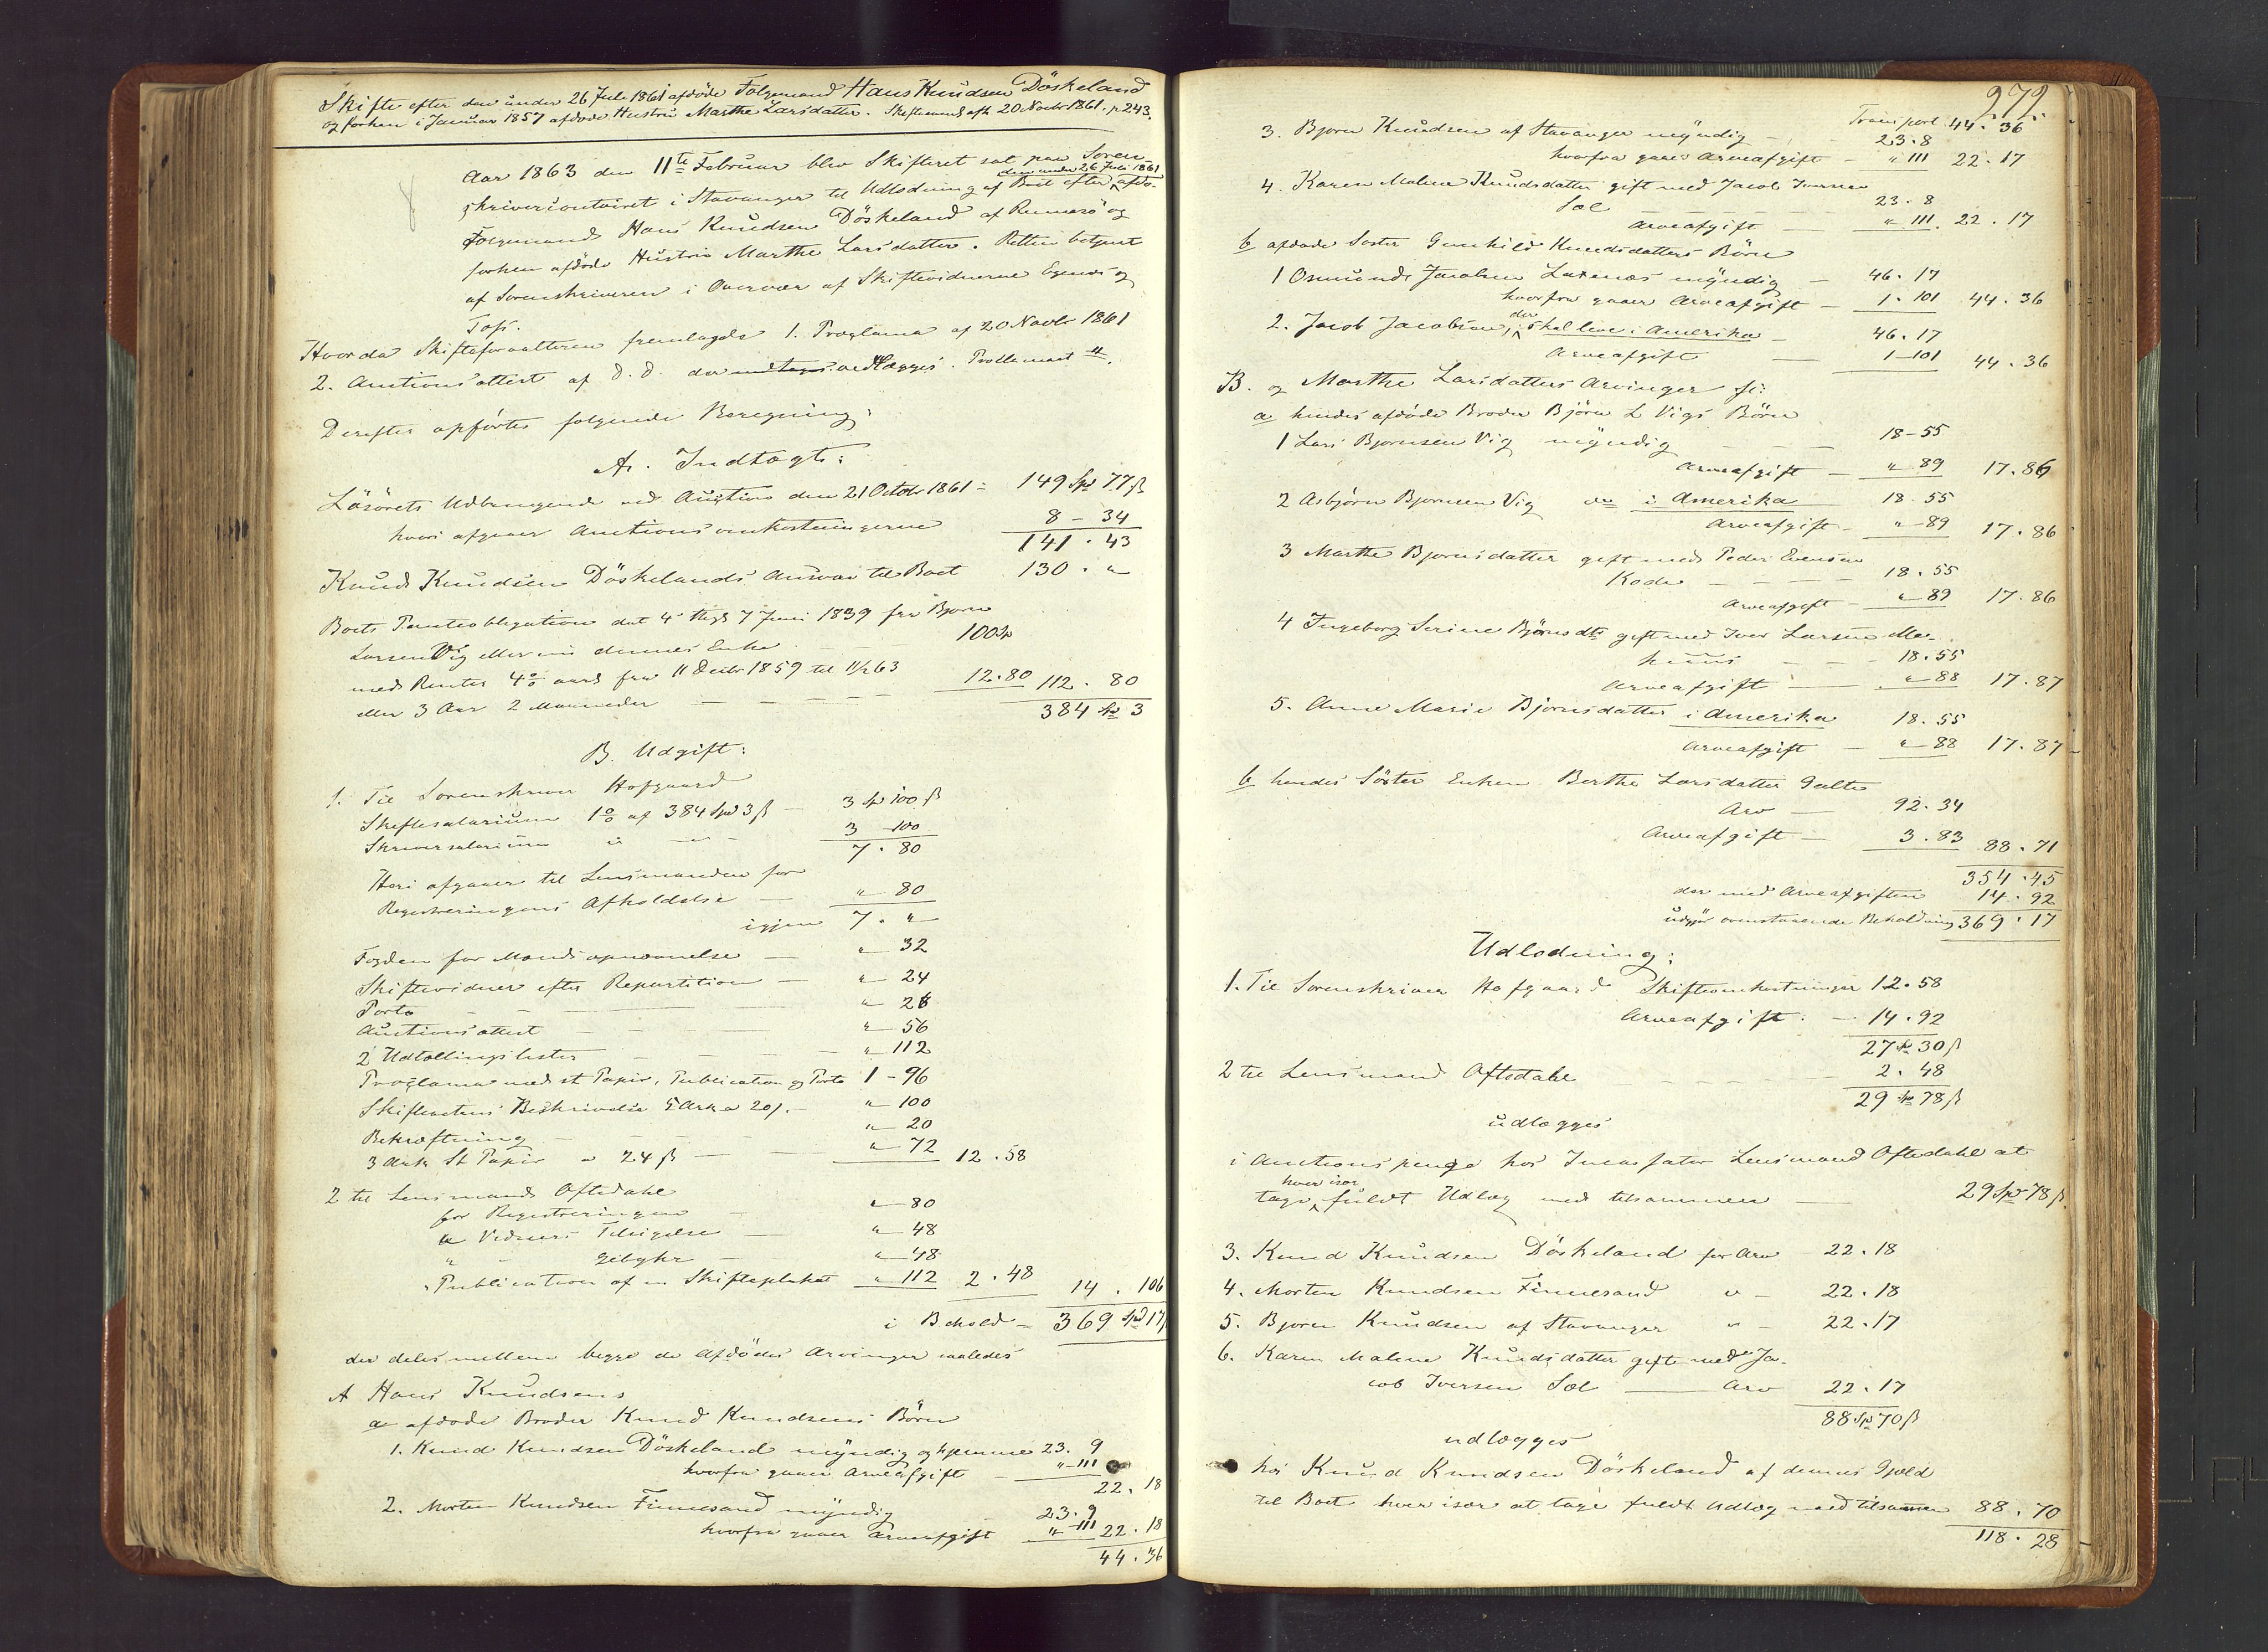 Skifte efter den under 26 Juli 1861 afdøde Følgemand Hans Knudsen Döskeland
og forhen i Januar 1857 afdøde Hustru Marthe Larsdatter. Skiftesaml afh 20 Novbr 1861. p 243.
Aar 1863 den 11te Februar blev Skifteret sat paa Soren-
den under 26 Juli 1861
skrivercontoiret i Stavanger til Udlodning af Boet efter afdø-
Følgemand Hans Knudsen Döskeland af Rennesö og
forhen afdöde Hustru Marthe Larsdatter. Retten betjent
af Sorenskriveren i Overvær af Skiftevidnerne Egenæs og
Toft.
Hvorda Skifteforvalteren fremlagde 1. Proclama af 20 Novbr 1861
2. Auctionsattest af d. d. der vedlægges.
Derefter opførtes følgende Beregning:
A. Indtægt:
Lösörets Udbringende ved Auction den 21 Octobr 1861 = 149 Spd 77 ß
hvori afgaaer Auctionsomkostningerne 8 - 34
141 . 43
Knud Knudsen Döskelands Ansvar til Boet 130 . "
Boets Panteobligation dat 4 thgl 7 Juni 1839 fra Bjørn
Larsen Vig eller nu dennes Enke 100 Sp
med Renter 4 % aarl fra 11 Decbr 1859 til 11/2 63
eller 3 Aar 2 Maaneder - - - 12.80 112 . 80
384 Sp 3
B. Udgift:
1. Til Sorenskriver Hofgaard
Skiftesalarium 1 % af 384 Spd 3 ß - 3 Sp 100 ß
Skriversalarium " - - 3 100
7 . 80
Heri afgaaer til Lensmanden for
Registreringens Afholdelse - " 80
igjen 7 . "
Fogden for Mandsopnævnelse - " 32
Skiftevidner efter Repartition - " 24
Porto - - " 26
Auctionsattest - - - " 56
2 Udlodningslister - - - " 112
Proclama med st Papir, Publication og Porto 1 - 96
Skifteactens Beskrivelse 5 Ark a 20 ß. - " 100
Bekræftning - - - - " 20
3 Ark St Papir a 24 ß - - " 72 12 . 58
2 til Lensmand Oftedahl
for Registreringen - " 80
" Vidners Tilsigelse - " 48
" - Gebyhr - " 48
" Publication af en Skifteplakat " 112 2 . 48 14 . 106
i Behold - 369 Spd 17
der deles mellem begge de Afdödes Arvinger saaledes
A Hans Knudsens
a afdøde Broder Knud Knudsens Börn
1. Knud Knudsen Döskeland myndig og hjemme 23. 9
hvorfra gaaer Arveafgift - " 111 22 . 18
2. Morten Knudsen Finnesand myndig 23 . 9
hvorfra gaaer Arveafgift " 111 22 . 18
44 . 36
272.
Transport 44 . 36
3. Bjørn Knudsen af Stavanger myndig - 23 . 8
hvorfra gaaer Arveafgift - " 111 22 . 17
4. Karen Malene Knudsdatter gift med Jacob Iversen
Sæl - - - 23 . 8
Arveafgift - " 111. 22 . 17
b afdøde Søster Gunhild Knudsdatters Börn
1 Osmund Jacobsen Laxenæs myndig - 46 . 17
hvorfra gaaer Arveafgift - 1 . 101 44 . 36
2. Jacob Jacobsen, der skal leve i Amerika - 46 . 17
Arveafgift - 1 - 101 44 . 36
B. og Marthe Larsdatters Arvinger s:
a hendes afdøde Broder Björn L Vigs Börn
1 Lars Bjørnsen Vig myndig - - - 18 - 55
Arveafgift - " 89 17 . 86
2 Asbjörn Bjørnsen Vig i Amerika 18 . 55
Arveafgift - " 89 17 . 86
3 Marthe Bjørnsdatter gift med Peder Evensen
- - - - 18 . 55
Arveafgift - " 89 17 . 86
4 Ingeborg Serine Björnsdtr gift med Iver Larsen Me-
huus - - - 18 . 55
Arveafgift - " 88 17 . 87
5. Anne Marie Bjørnsdatter i Amerika 18 . 55
Arveafgift - " 88 17 . 87
b hendes Söster Enken Berthe Larsdatter Galte
Arv - 92 . 34
Arveafgift - 3 . 83 88 . 71
354 . 45
der med Arveafgiften 14 . 92
udgjør ovenstaaende Beholdning 369 . 17
Udlodning:
1. Til Sorenskriver Hofgaard Skifteomkostninger 12 . 58
Arveafgift . - 14 . 92
27 Sp 30 ß
2 til Lensmand Oftedahl - - - - 2 . 48
29 Sp 78 ß
udlægges
i Auctionspenge hos Incassator Lensmand Oftedahl at
hver især
tage fuldt Udlæg med tilsammen - 29 Spd 78 ß
3. Knud Knudsen Döskeland for Arv 22 . 18
4. Morten Knudsen Finnesand " - 22 . 18
5. Bjørn Knudsen af Stavanger " - 22 . 17
6. Karen Malene Knudsdatter gift med Ja-
cob Iversen Sæl - Arv 22 . 17
88 Sp 70 ß
udlægges
hos Knud Knudsen Döskeland af dennes Gjæld
til Boet hver især at tage fuldt Udlæg med tilsammen 88 . 70
118 . 28